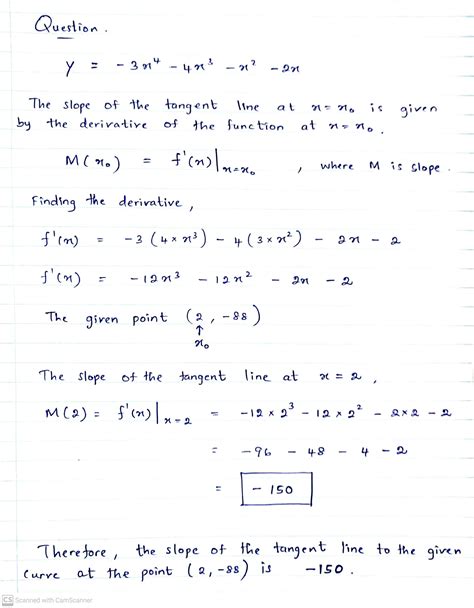 Question.
y = -3x⁴ - 4x³ - x² - 2x
The slope of the tangent line at x = x₀ is given
by the derivative of the function at x = x₀.
M(x₀) = f'(x)|ₓ₌ₓ₀ , where M is slope.
Finding the derivative,
f'(x) = -3(4×x³) - 4(3×x²) - 2x - 2
f'(x) = -12x³ - 12x² - 2x - 2
The given point (2, -88)
↑
x₀
The slope of the tangent line at x = 2,
M(2) = f'(x)|ₓ₌₂ = -12×2³ - 12×2² - 2×2 - 2
= -96 - 48 - 4 - 2
= -150
Therefore, the slope of the tangent line to the given
curve at the point (2, -88) is -150.
CS Scanned with CamScanner